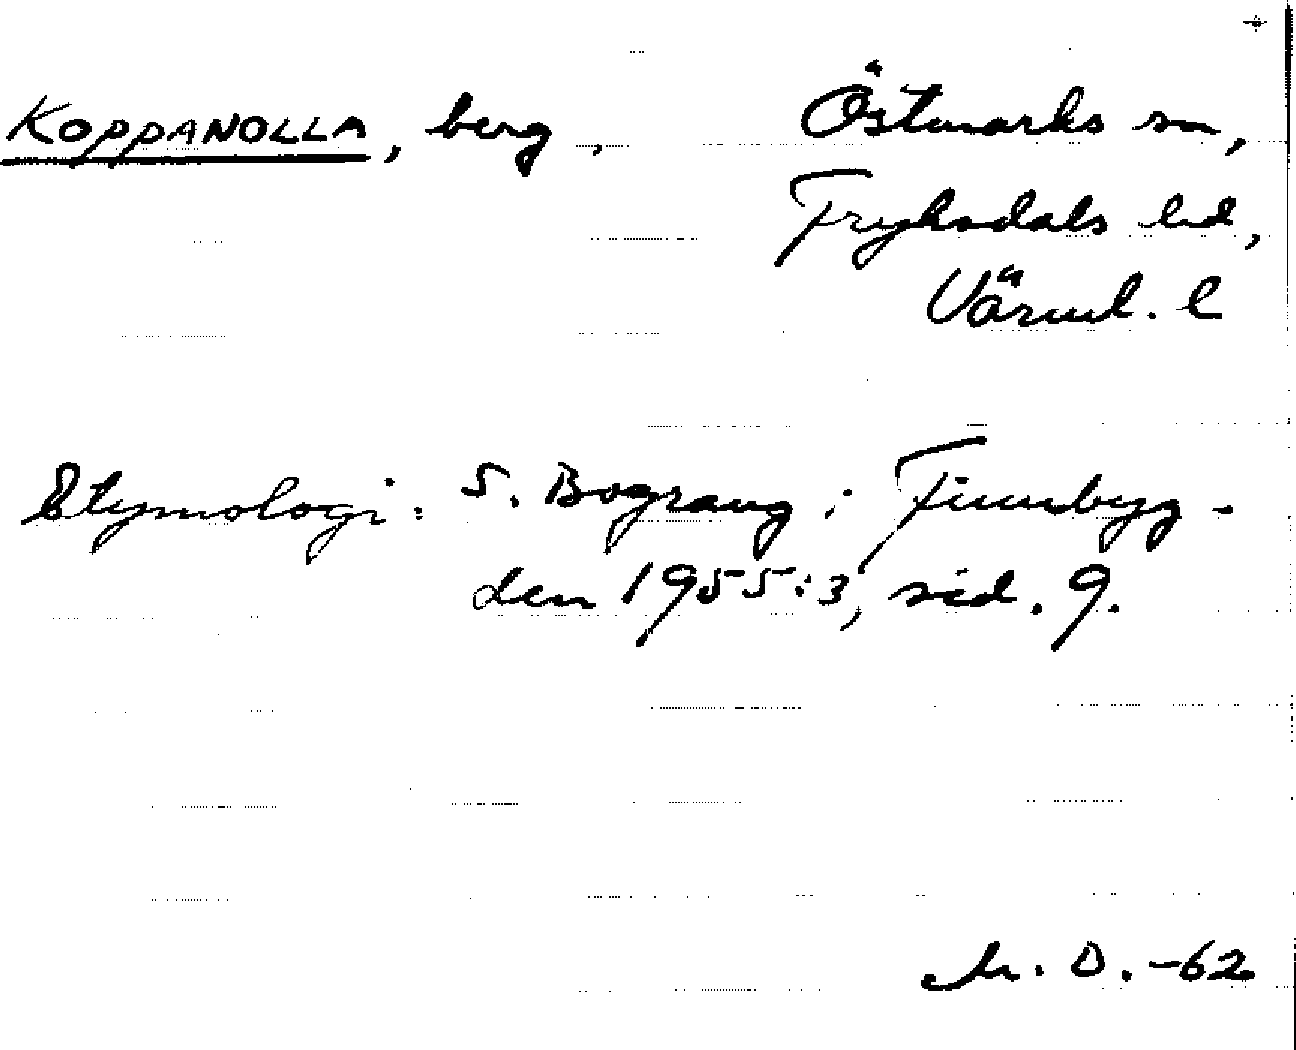 KOPPANOLLA, berg, Östmarks sn,
Fryksdals hd,
Värml. l
Etymologi: S. Bograng i Finnbyg-
den 1955:3, sid. 9.
M. D. -62